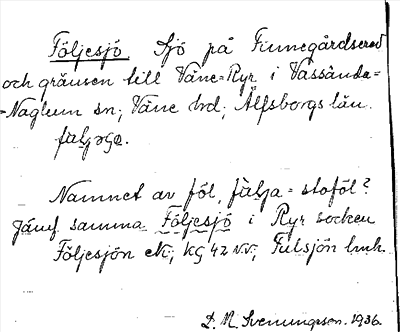 Följesjö. Sjö på Finnegårdserud
och gränsen till Väne-Ryr i Vassända=
=Naglum sn; Väne hd, Älfsborgs län.
Namnet av föl, fälja = stoföl?
Jämf samma Följesjö i Ryr socken
Följesjön ek; KG 42 NV; Fulsjön hmk.
D. N. Svenungson. 1936.